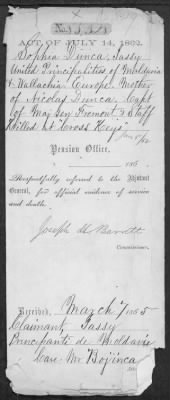 ACT OF JULY 14, 1862.
Sophia Dunca, Jassy
United Principalities of Moldavia
& Wallachia Europe Mother
of Nicolas Dunca Capt
of Maj Gen Fremont's Staff
Killed at "Cross Keys"
Pension Office,
186
Respectfully referred to the Adjutant
General, for official evidence of service
and death.
Joseph H Barrett
Commissioner.
Received, March 7 1865
Claimant Jassy
Principauté de Moldavie
Care Mr Bojinca